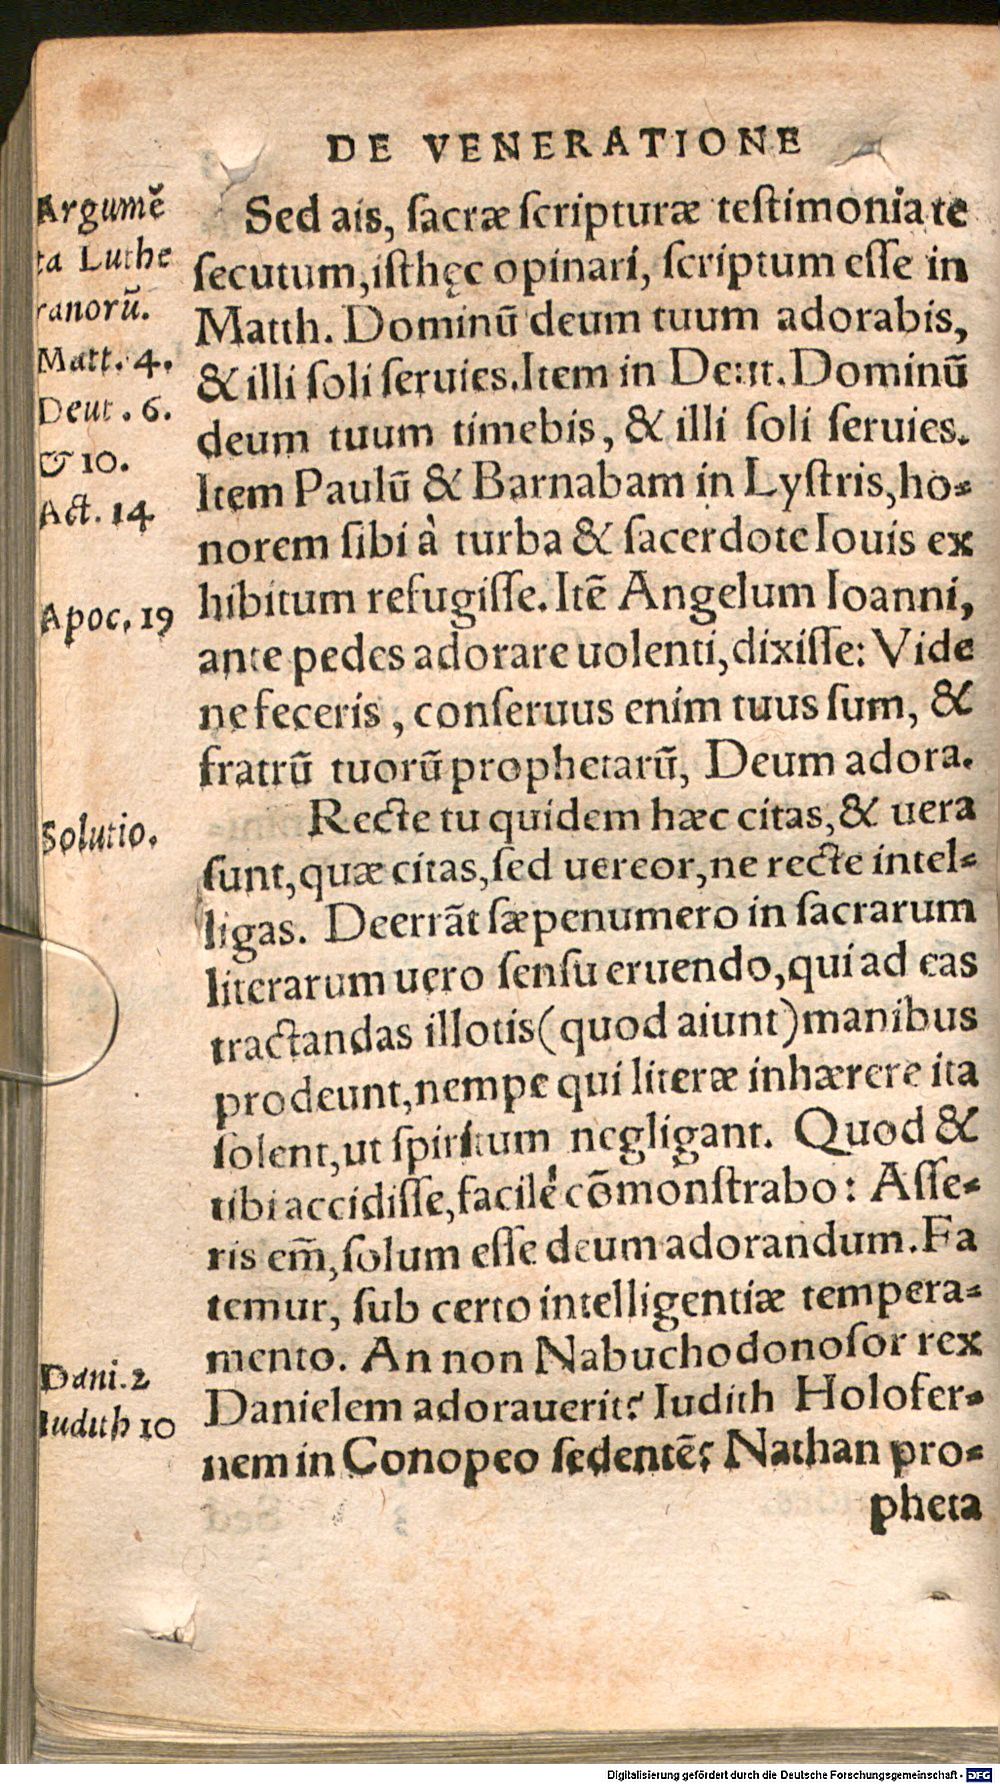 DE VENERATIONE
Argumẽ
ta Luthe
ranorũ.
Matt. 4.
Deut. 6.
& 10.
Act. 14
Apoc. 19
Sed ais, sacræ scripturæ testimonia te
secutum, isthęc opinari, scriptum esse in
Matth. Dominũ deum tuum adorabis,
& illi soli seruies. Item in Deut. Dominũ
deum tuum timebis, & illi soli seruies.
Item Paulũ & Barnabam in Lystris, ho-
norem sibi à turba & sacerdote Iouis ex
hibitum refugisse. Itẽ Angelum Ioanni,
ante pedes adorare uolenti, dixisse: Vide
ne feceris, conseruus enim tuus sum, &
fratrũ tuorũ prophetarũ, Deum adora.
Solutio.
Recte tu quidem hæc citas, & uera
sunt, quæ citas, sed uereor, ne recte intel-
ligas. Deerrãt sæpenumero in sacrarum
literarum uero sensu eruendo, qui ad eas
tractandas illotis (quod aiunt) manibus
prodeunt, nempe qui literæ inhærere ita
solent, ut spiritum negligant. Quod &
tibi accidisse, facilè cõmonstrabo: Asse-
ris em̃, solum esse deum adorandum. Fa
temur, sub certo intelligentiæ tempera-
mento. An non Nabuchodonosor rex
Danielem adorauerit? Iudith Holofer-
nem in Conopeo sedentẽ? Nathan pro-
pheta
Dani. 2
Iudith 10
Digitalisierung gefördert durch die Deutsche Forschungsgemeinschaft - DFG